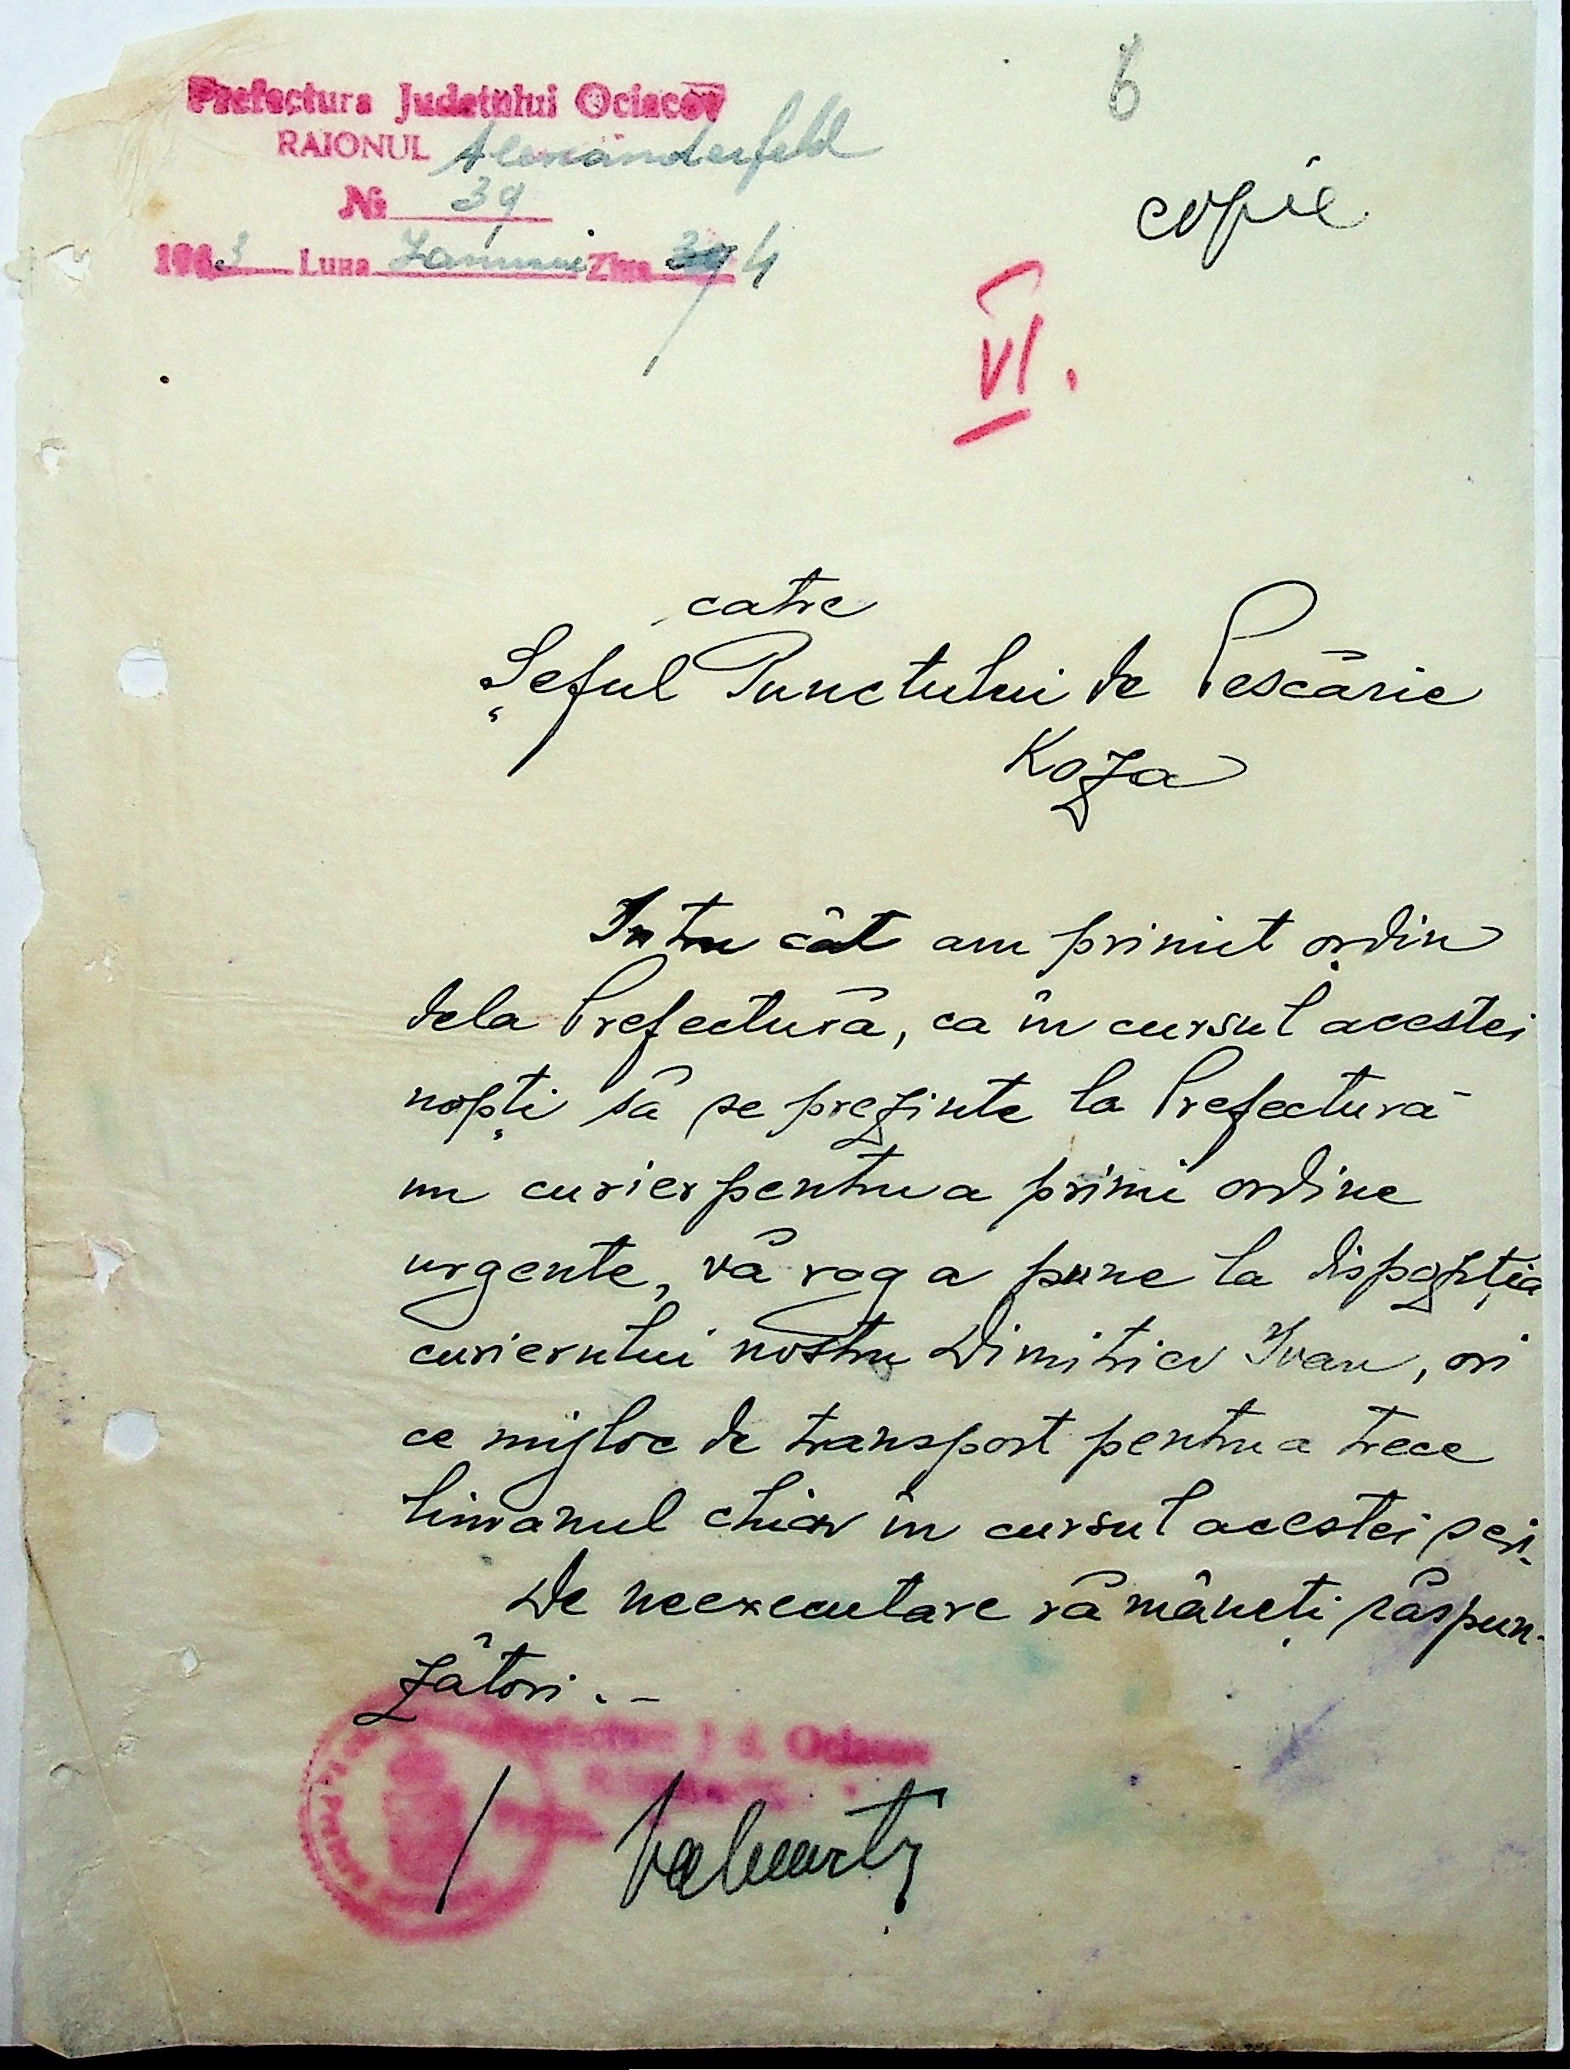 Prefectura Judetului Ociacov
RAIONUL Alexanderfeld
6
copie
№ 39
1943 Luna Ianuarie Ziua 4
VI.
catre
Șeful Punctului de Pescărie
Koza
Intru cât am primit ordin
dela Prefectură, ca în cursul acestei
nopți să se prezinte la Prefectură
un curier pentru a primi ordine
urgente, vă rog a pune la dispoziția
curierului nostru Dimitriev Ivan, ori
ce mijloc de transport pentru a trece
limanul chiar în cursul acestei seri.
De neexecutare rămâneți răspun-
zători. -
Prefectura J d. Ociacov